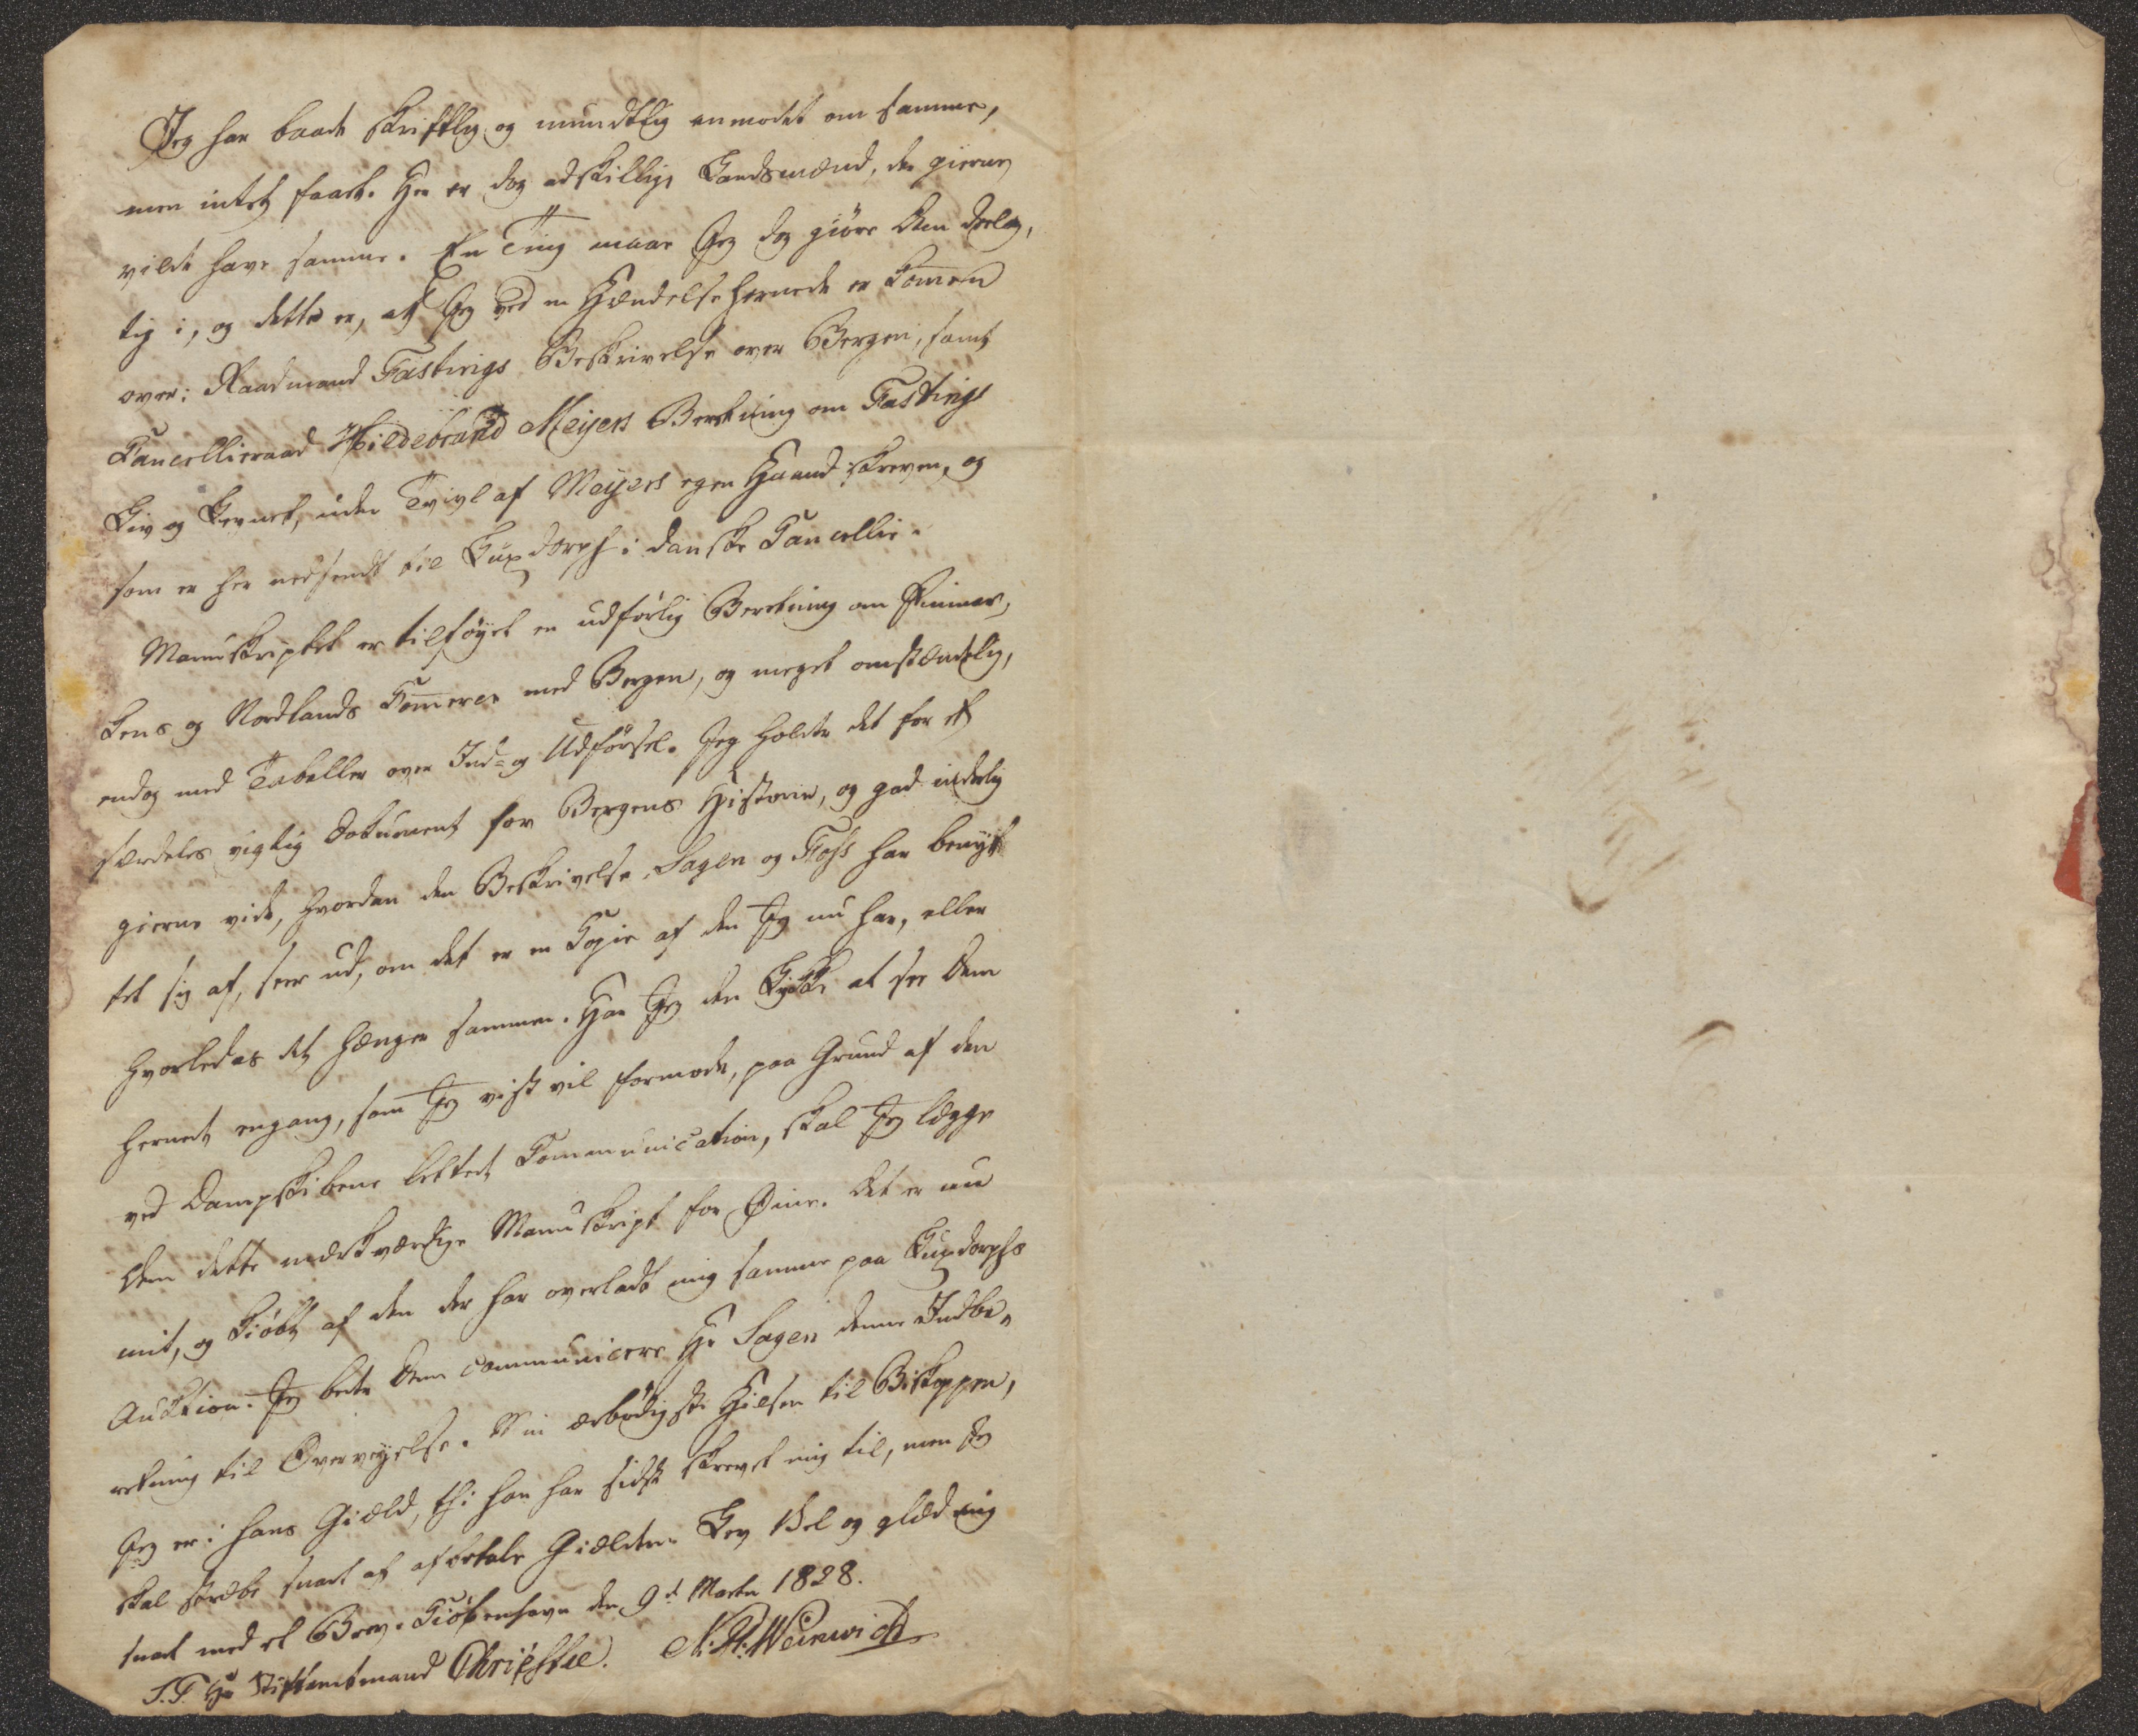 Jeg har baade skriftlig og mundtlig anmodet om samme,
men intet faaet. Her er dog adskillige Landsmænd, der gierne
vilde have samme. En Ting maae Jeg dog giöre Dem deelag,
tig i, og dette er, at Jeg ved en Hændelse hernede er kom̄en
over: Raadmand Fastings Beskrivelse over Bergen, samt
Cancellieraad Hildebrand Meyers Beretning om Fastings
Liv og Levnet, uden Tvivl af Meyers egen Haand skreven, og
som er her nedsendt til Luxdorph i danske Cancellie.
Manuskriptet er tilföyet en udförlig Beretning om Finmar,
kens og Nordlands Com̄erce med Bergen, og meget omstændelig,
endog med Tabeller over Ind- og Udförsel. Jeg holder det for et
særdeles vigtig Dokument for Bergens Historie, og gad inderlig
gierne vide, hvordan den Beskrivelse, Sagen og Foss har benyt
tet sig af, seer ud, om det er en Copie af den Jeg nu har, eller
hvorledes det hænger sammen. Har Jeg den Lykke at see Dem
hernede engang, som Jeg vist vil formode, paa Grund af den
ved Dampskibene lettede Communication, skal Jeg lægge
Dem dette mærkværdige Manuskript for Öine. Det er nu
mit, og kiöbt af den der har overladt mig samme paa Luxdorphs
Auction. Jeg beder Dem communicere Hr Sagen denne Indbe„
retning til Overveyelse. Min ærbödigste Hilsen til Biskoppen,
Jeg er i hans Giæld, thi han har sidst skrevet mig til, men Jeg
skal stræbe snart at afbetale Giælden. Lev Vel og glæd mig
snart med et Brev. Kiöbenhavn den 9d Marts 1828.
S. T. Hr Stiftamtmand Christie. N. H. Weinwich